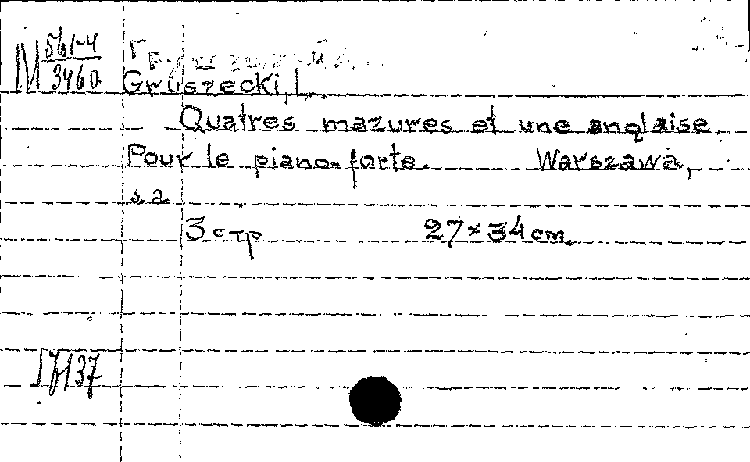 M 561-4
3460
Gruszecki, L.
Quatres mazures et une anglaise.
Pour le piano-forte. Warszawa,
s.a.
3 стр 27×34 cm.